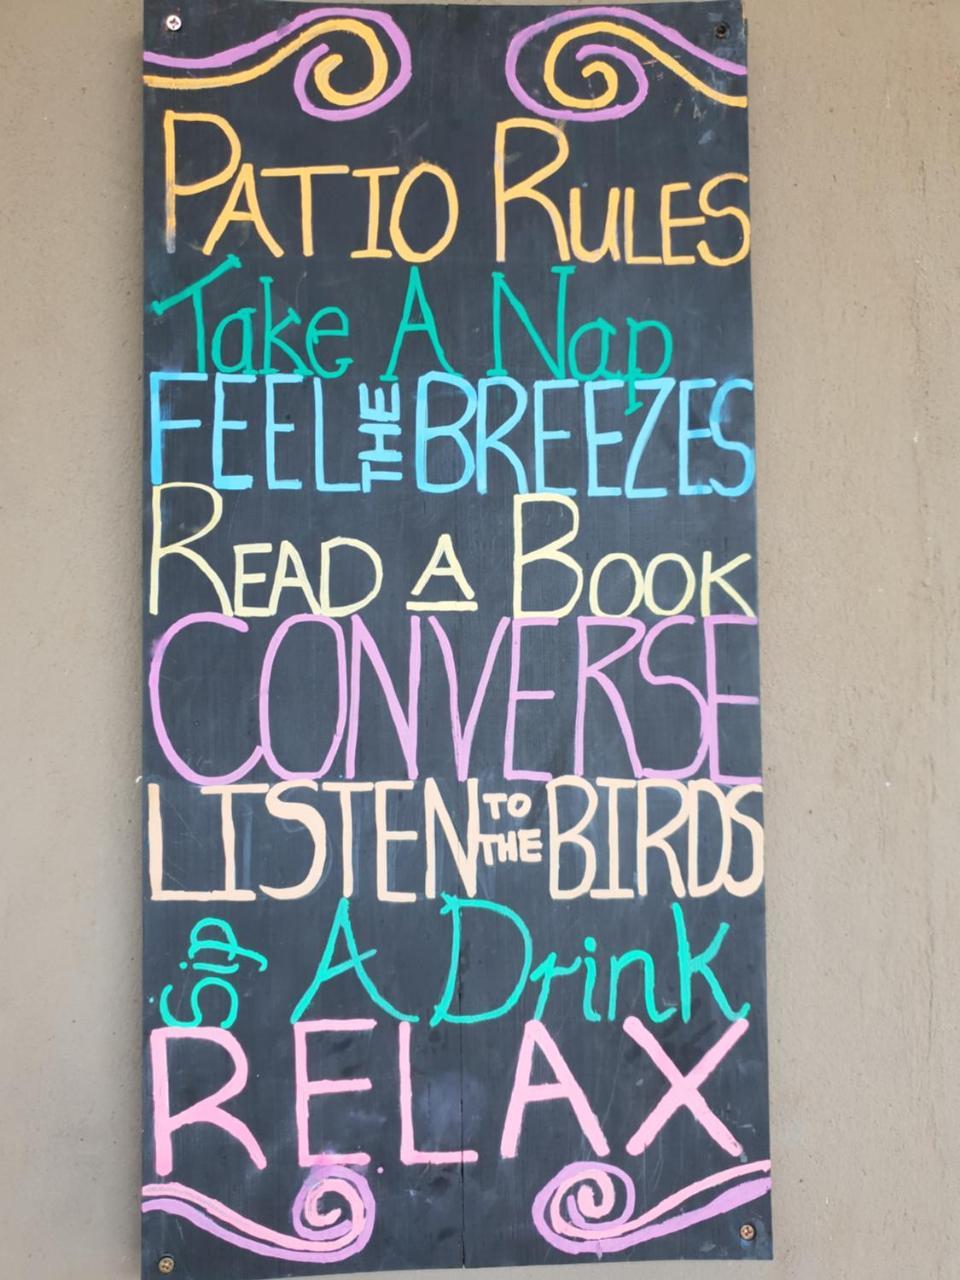 PATIO RULES
Take A Nap
FEEL THE BREEZES
READ A BOOK
CONVERSE
LISTEN TO THE BIRDS
Sip A Drink
RELAX